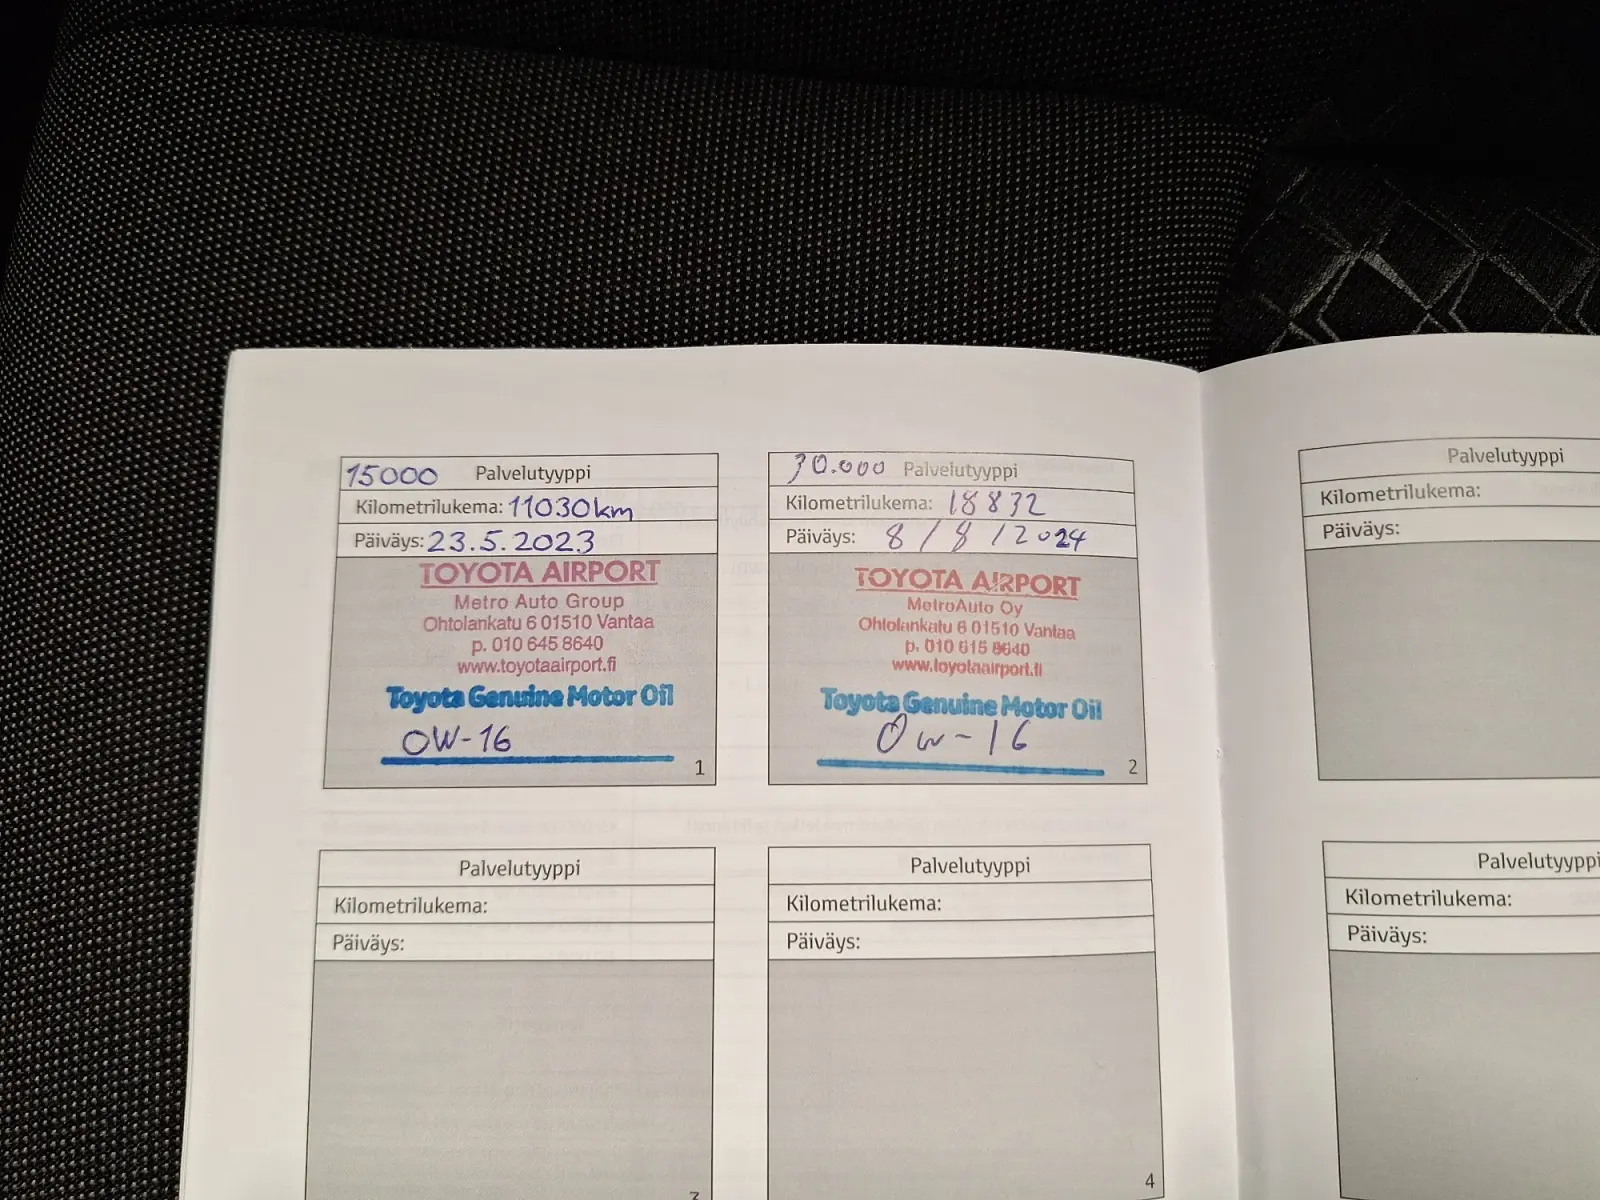 15000 Palvelutyyppi
Kilometrilukema: 11030km
Päiväys: 23.5.2023
TOYOTA AIRPORT
Metro Auto Group
Ohtolankatu 6 01510 Vantaa
p. 010 645 8640
www.toyotaairport.fi
Toyota Genuine Motor Oil
OW-16
1
30.000 Palvelutyyppi
Kilometrilukema: 18832
Päiväys: 8/8/2024
TOYOTA AIRPORT
MetroAuto Oy
Ohtolankatu 6 01510 Vantaa
p. 010 615 8640
www.toyotaairport.fi
Toyota Genuine Motor Oil
OW-16
2
Palvelutyyppi
Kilometrilukema:
Päiväys:
3
Palvelutyyppi
Kilometrilukema:
Päiväys:
4
Palvelutyyppi
Kilometrilukema:
Päiväys:
Palvelutyyppi
Kilometrilukema:
Päiväys: